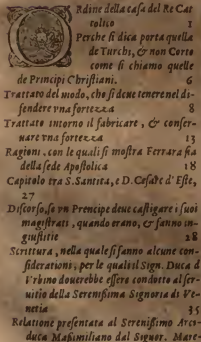 ORdine della casa del Re Cat
tolico 1
Perche si dica porta quella
de Turchi, & non Corte
come si chiamo quelle
de Principi Christiani. 6
Trattato del modo, che si deue tenere nel di-
fendere vna fortezza 8
Trattato intorno il fabricare, & conser-
uare vna fortezza 13
Ragioni, con le quali si mostra Ferrara sia
della sede Apostolica 18
Capitolo tra S. Santità, e D. Cesare d'Este,
27
Discorso, se vn Prencipe deue castigare i suoi
magistrati, quando erano, & fanno in-
giustitie 28
Scrittura, nella quale si fanno alcune con-
siderationi, per le quali il Sign. Duca d
Vrbino dourebbe essere condotto al ser-
uitio della Serenissima Signoria di Ve-
netia 35
Relatione presentata al Serenissimo Arci-
duca Massimiliano dal Signor. Mare-